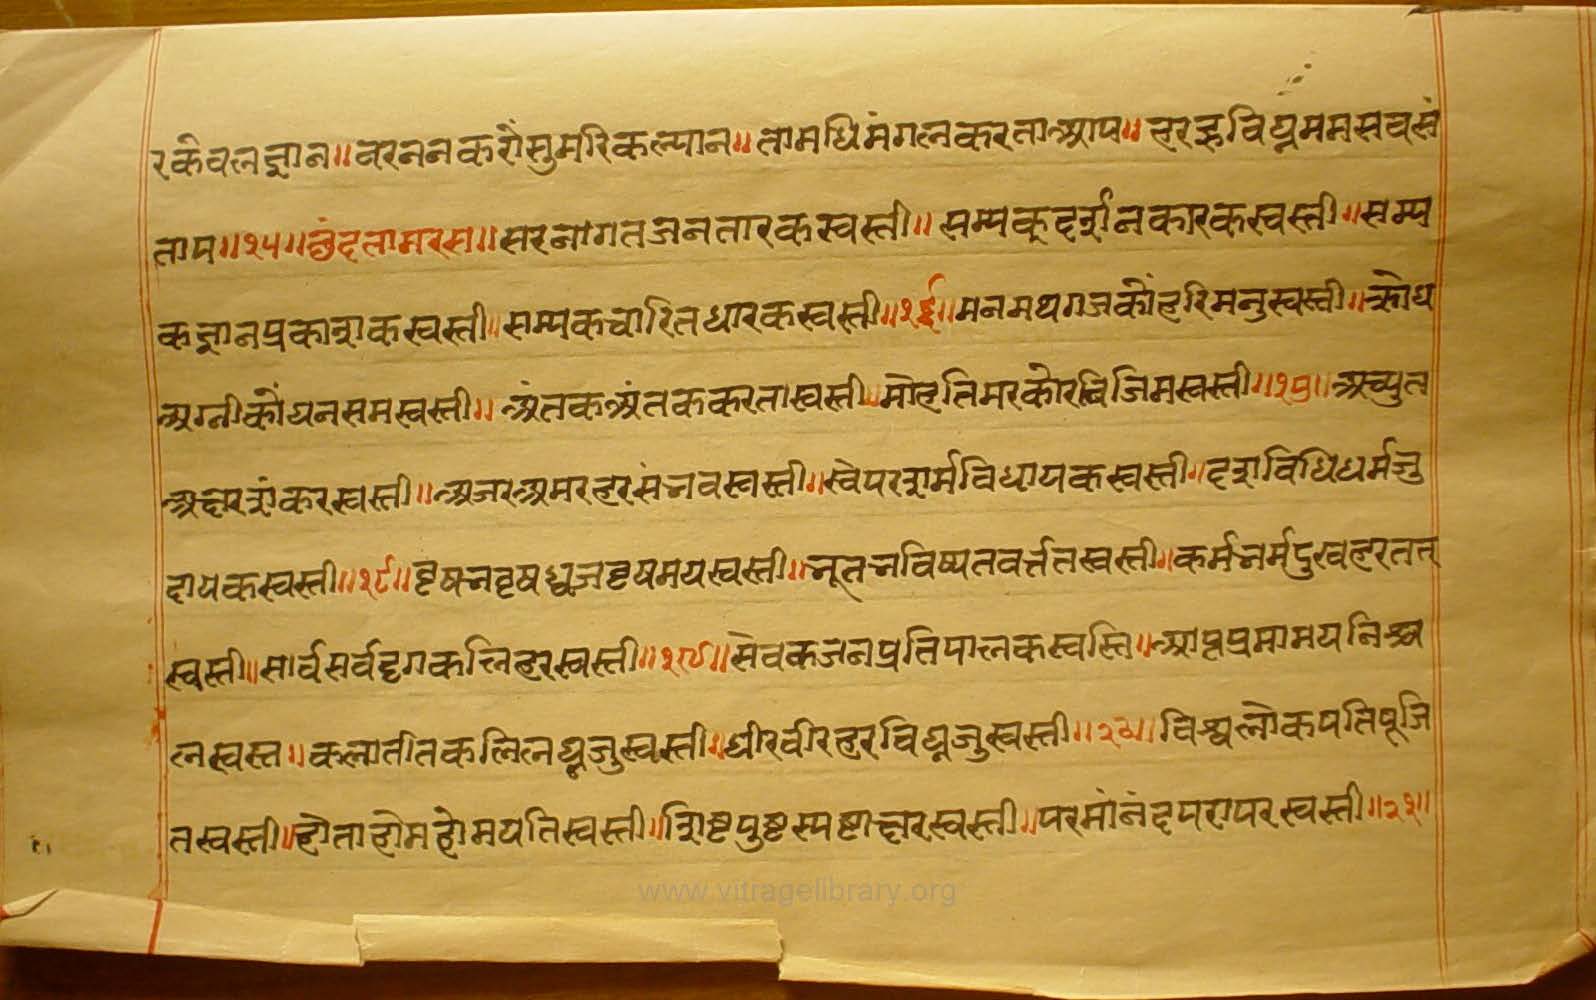 रकेवलज्ञान॥वरननकरौंसुमरिकल्यान॥तामधिमंगलकरताआप॥हरहुविघ्नममसवसं
ताप॥१५॥छंदतामरस॥सरनागतजनतारकस्वस्ती॥सम्यक्दर्शनकारकस्वस्ती॥सम्य
कज्ञानप्रकाशकस्वस्ती॥सम्यकचारितधारकस्वस्ती॥१६॥मनमथगजकौंहरिमनुस्वस्ती॥क्रोध
अग्नीकौंघनसमस्वस्ती॥अंतकअंतककरतास्वस्ती॥मोहतिमरकोरविजिमस्वस्ती॥१७॥अच्युत
शंकरस्वस्ती॥अजरअमरहरसंनवस्वस्ती॥स्वेपरशर्मविधायकस्वस्ती॥दशविधिधर्मजु
दायकस्वस्ती॥१८॥वृषध्वजवृषमयस्वस्ती॥नूतनविष्यतवर्त्ततस्वस्ती॥कर्मनर्मदुखहरतत्
स्वस्ती॥सार्वसर्वदृगकलिहरस्वस्ती॥१९॥सेवकजनप्रतिपालकस्वस्ति॥आप्तप्रमामयनिश्च
लस्वस्त॥कलातीतकलिलघ्नजुस्वस्ती॥धीरवीरहरविघ्नजुस्वस्ती॥२०॥विश्वलोकपतिपूजि
तस्वस्ती॥होताहोमहोमयतिस्वस्ती॥शिष्टपुष्टस्पष्टाक्षरस्वस्ती॥परमांनंदपरापरस्वस्ती॥२१॥
www.vitragelibrary.org